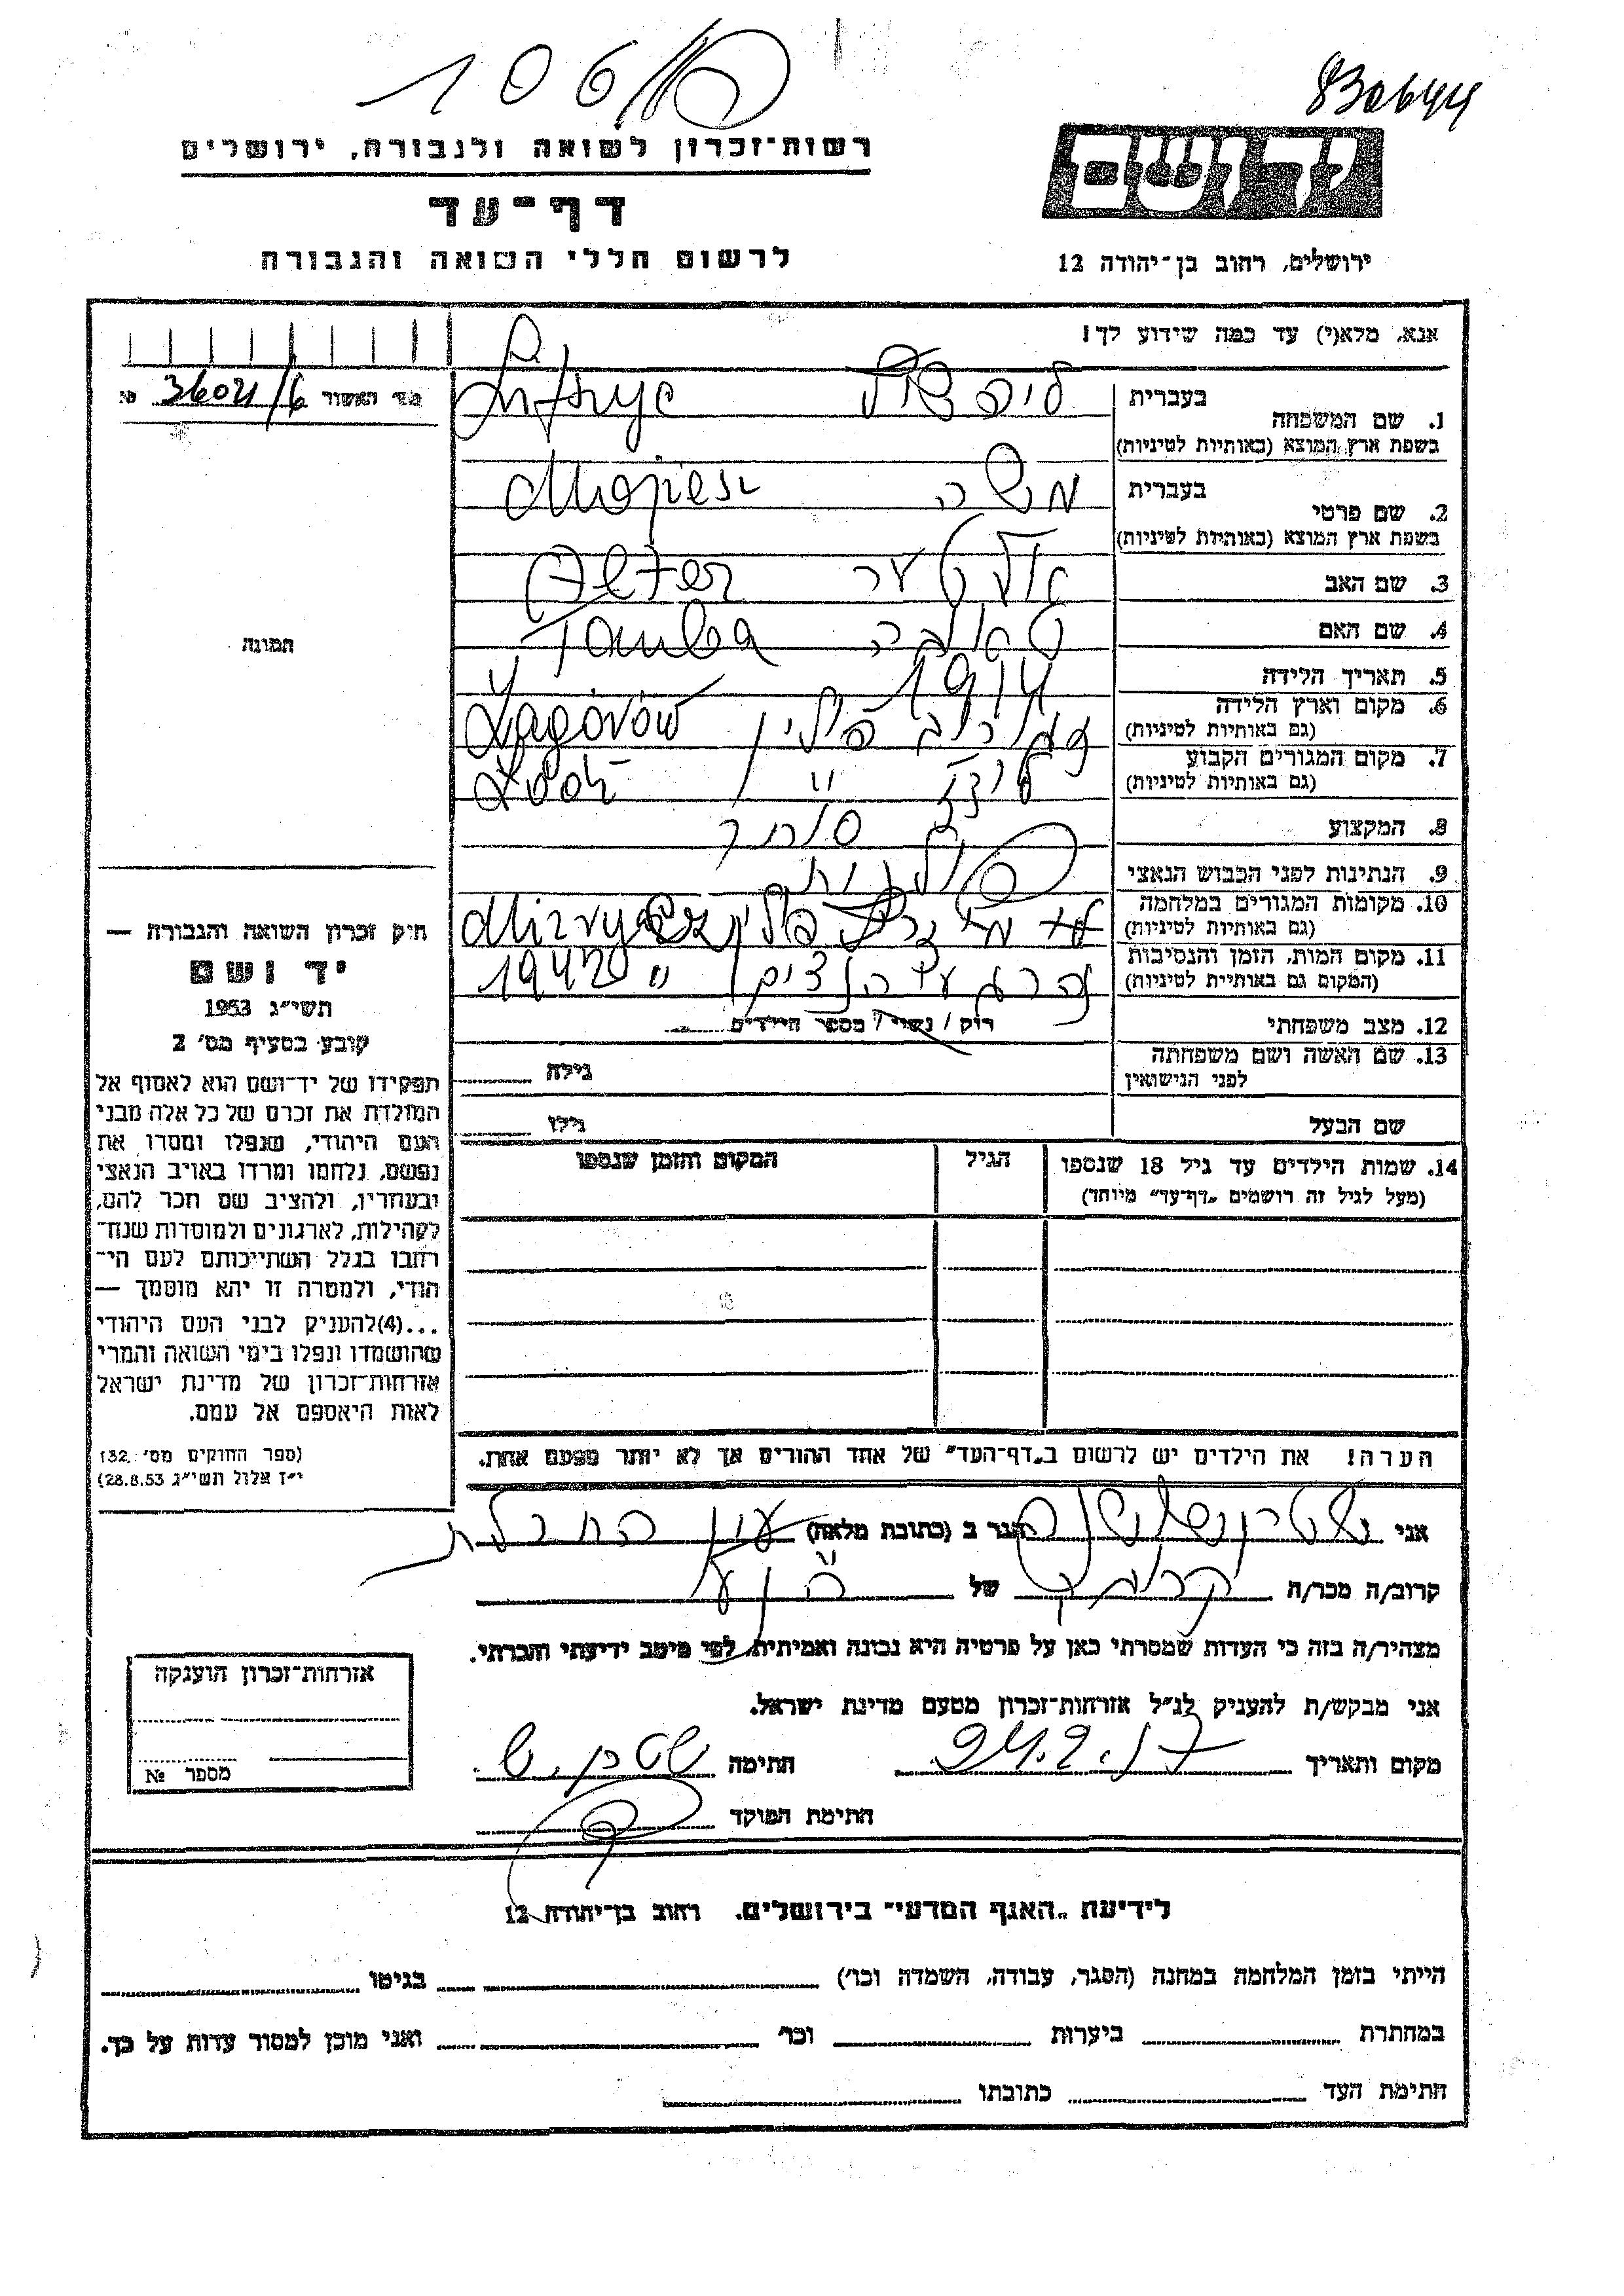 106
830644
רשות־זכרון לשואה ולגבורה, ירושלים
יד ושם
דף־עד
לרשום חללי השואה והגבורה
ירושלים, רחוב בן־יהודה 12
אנא, מלא(י) עד כמה שידוע לך!
מס׳ האשור № 36021/6
בעברית
1. שם המשפחה
בשפת ארץ המוצא (באותיות לטיניות)
בעברית משה Mojiesz
2. שם פרטי
בשפת ארץ המוצא (באותיות לטיניות)
3. שם האב אלטער Alter
4. שם האם טאובה Tauba
5. תאריך הלידה 1914
6. מקום וארץ הלידה פולין Żagórów
(גם באותיות לטיניות)
7. מקום המגורים הקבוע לודז׳ " Łódź
(גם באותיות לטיניות)
8. המקצוע סוחר
9. הנתינות לפני הכבוש הנאצי פולנית
10. מקומות המגורים במלחמה פולין
(גם באותיות לטיניות)
11. מקום המות, הזמן והנסיבות 1942
(המקום גם באותיית לטיניות)
12. מצב משפחתי רוק / נשוי / מספר הילדים
13. שם האשה ושם משפחתה גילה
לפני הנישואין
שם הבעל גילו
14. שמות הילדים עד גיל 18 שנספו הגיל המקום והזמן שנספו
(מעל לגיל זה רושמים „דף־עד״ מיוחד)
הערה! את הילדים יש לרשום ב„דף־העד״ של אחד ההורים אך לא יותר מפעם אחת.
תמונה
חוק זכרון השואה והגבורה —
יד ושם
תשי״ג 1953
קובע בסעיף מס׳ 2
תפקידו של יד־ושם הוא לאסוף אל
המולדת את זכרם של כל אלה מבני
העם היהודי, שנפלו ומסרו את
נפשם, נלחמו ומרדו באויב הנאצי
ובעוזריו, ולהציב שם וזכר להם,
לקהילות, לארגונים ולמוסדות שנח־
רחבו בגלל השתייכותם לעם הי־
הודי, ולמטרה זו יהא מוסמך —
...(4)להעניק לבני העם היהודי
שהושמדו ונפלו בימי השואה והמרי
אזרחות־זכרון של מדינת ישראל
לאות היאספם אל עמם.
(ספר החוקים מס׳ 132,
י״ז אלול תשי״ג 28.8.53)
אני הגר ב (כתובת מלאה) עין החבצלת
קרוב/ה מכר/ה של
מצהיר/ה בזה כי העדות שמסרתי כאן על פרטיה היא נכונה ואמיתית, לפי מיטב ידיעתי והכרתי.
אני מבקש/ת להעניק לנ״ל אזרחות־זכרון מטעם מדינת ישראל.
מקום ותאריך חתימה
חתימת הפוקד
אזרחות־זכרון הוענקה
מספר №
לידיעת „האגף המדעי״ בירושלים. רחוב בן־יהודה 12
הייתי בזמן המלחמה במחנה (הסגר, עבודה, השמדה וכו׳) בגיטו
במחתרת ביערות וכו׳ ואני מוכן למסור עדות על כך.
חתימת העד כתובתו